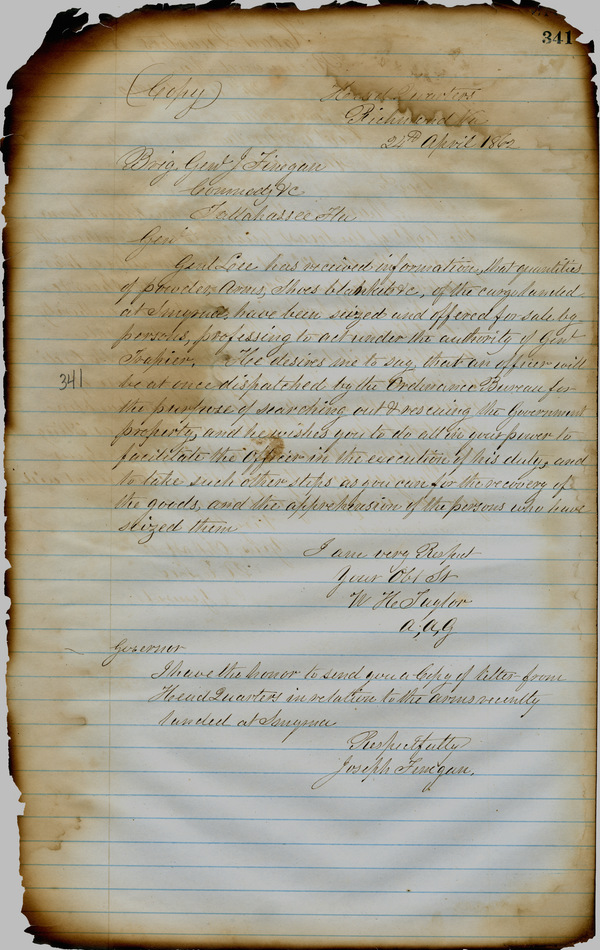 341
(Copy)
Head Quarters
Richmond Va
24th April 1862
Brig. Genl J Finegan
Commdg &c
Tallahassee Fla
Genl
Genl Lee has received information, that quantities
of powder, Arms, Shoes Blankets &c, of the cargo landed
at Smyrna, have been seized and offered for sale by
persons, professing to act under the authority of Genl
Trapier. He desires me to say, that an officer will
be at once dispatched by the Ordinance Bureau for
341
the purpose of searching out & rescuing the Government
property, and he wishes you to do all in your power to
facilitate the officer in the execution of his duty, and
to take such other steps as you can for the recovery of
the goods, and the apprehension of the persons who have
seized them
I am very Respct
Your Obt St
W H Taylor
a, a, g
Governor
I have the honor to send you a Copy of letter from
Head Quarters in relation to the arms recently
landed at Smyrna
Respectfully
Joseph Finegan.